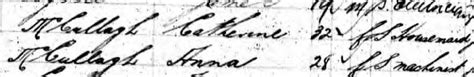 19 m S
McCullagh Catherine 32 f S Housemaid
McCullagh Anna 28 f S machinist